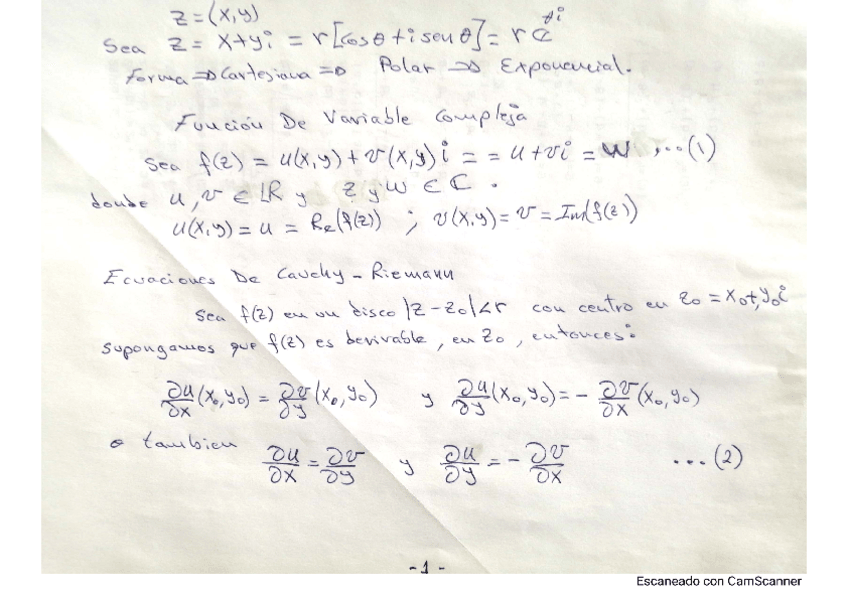 z = (x,y)
Sea z = x+yi = r[cosθ+i senθ] = r e^θi
Forma ⇒ Cartesiana ⇒ Polar ⇒ Exponencial.
Función De Variable Compleja
Sea f(z) = u(x,y) + v(x,y) i = = u+vi = w ,...(1)
donde u,v ∈ ℝ y z y w ∈ ℂ.
u(x,y) = u = Re(f(z)) ; v(x,y) = v = Im(f(z))
Ecuaciones De Cauchy - Riemann
Sea f(z) en un disco |z-z₀|<r con centro en z₀ = x₀+y₀i
supongamos que f(z) es derivable, en z₀, entonces:
∂u/∂x (x₀,y₀) = ∂v/∂y (x₀,y₀) y ∂u/∂y (x₀,y₀) = - ∂v/∂x (x₀,y₀)
o tambien
∂u/∂x = ∂v/∂y y ∂u/∂y = - ∂v/∂x ...(2)
-1-
Escaneado con CamScanner